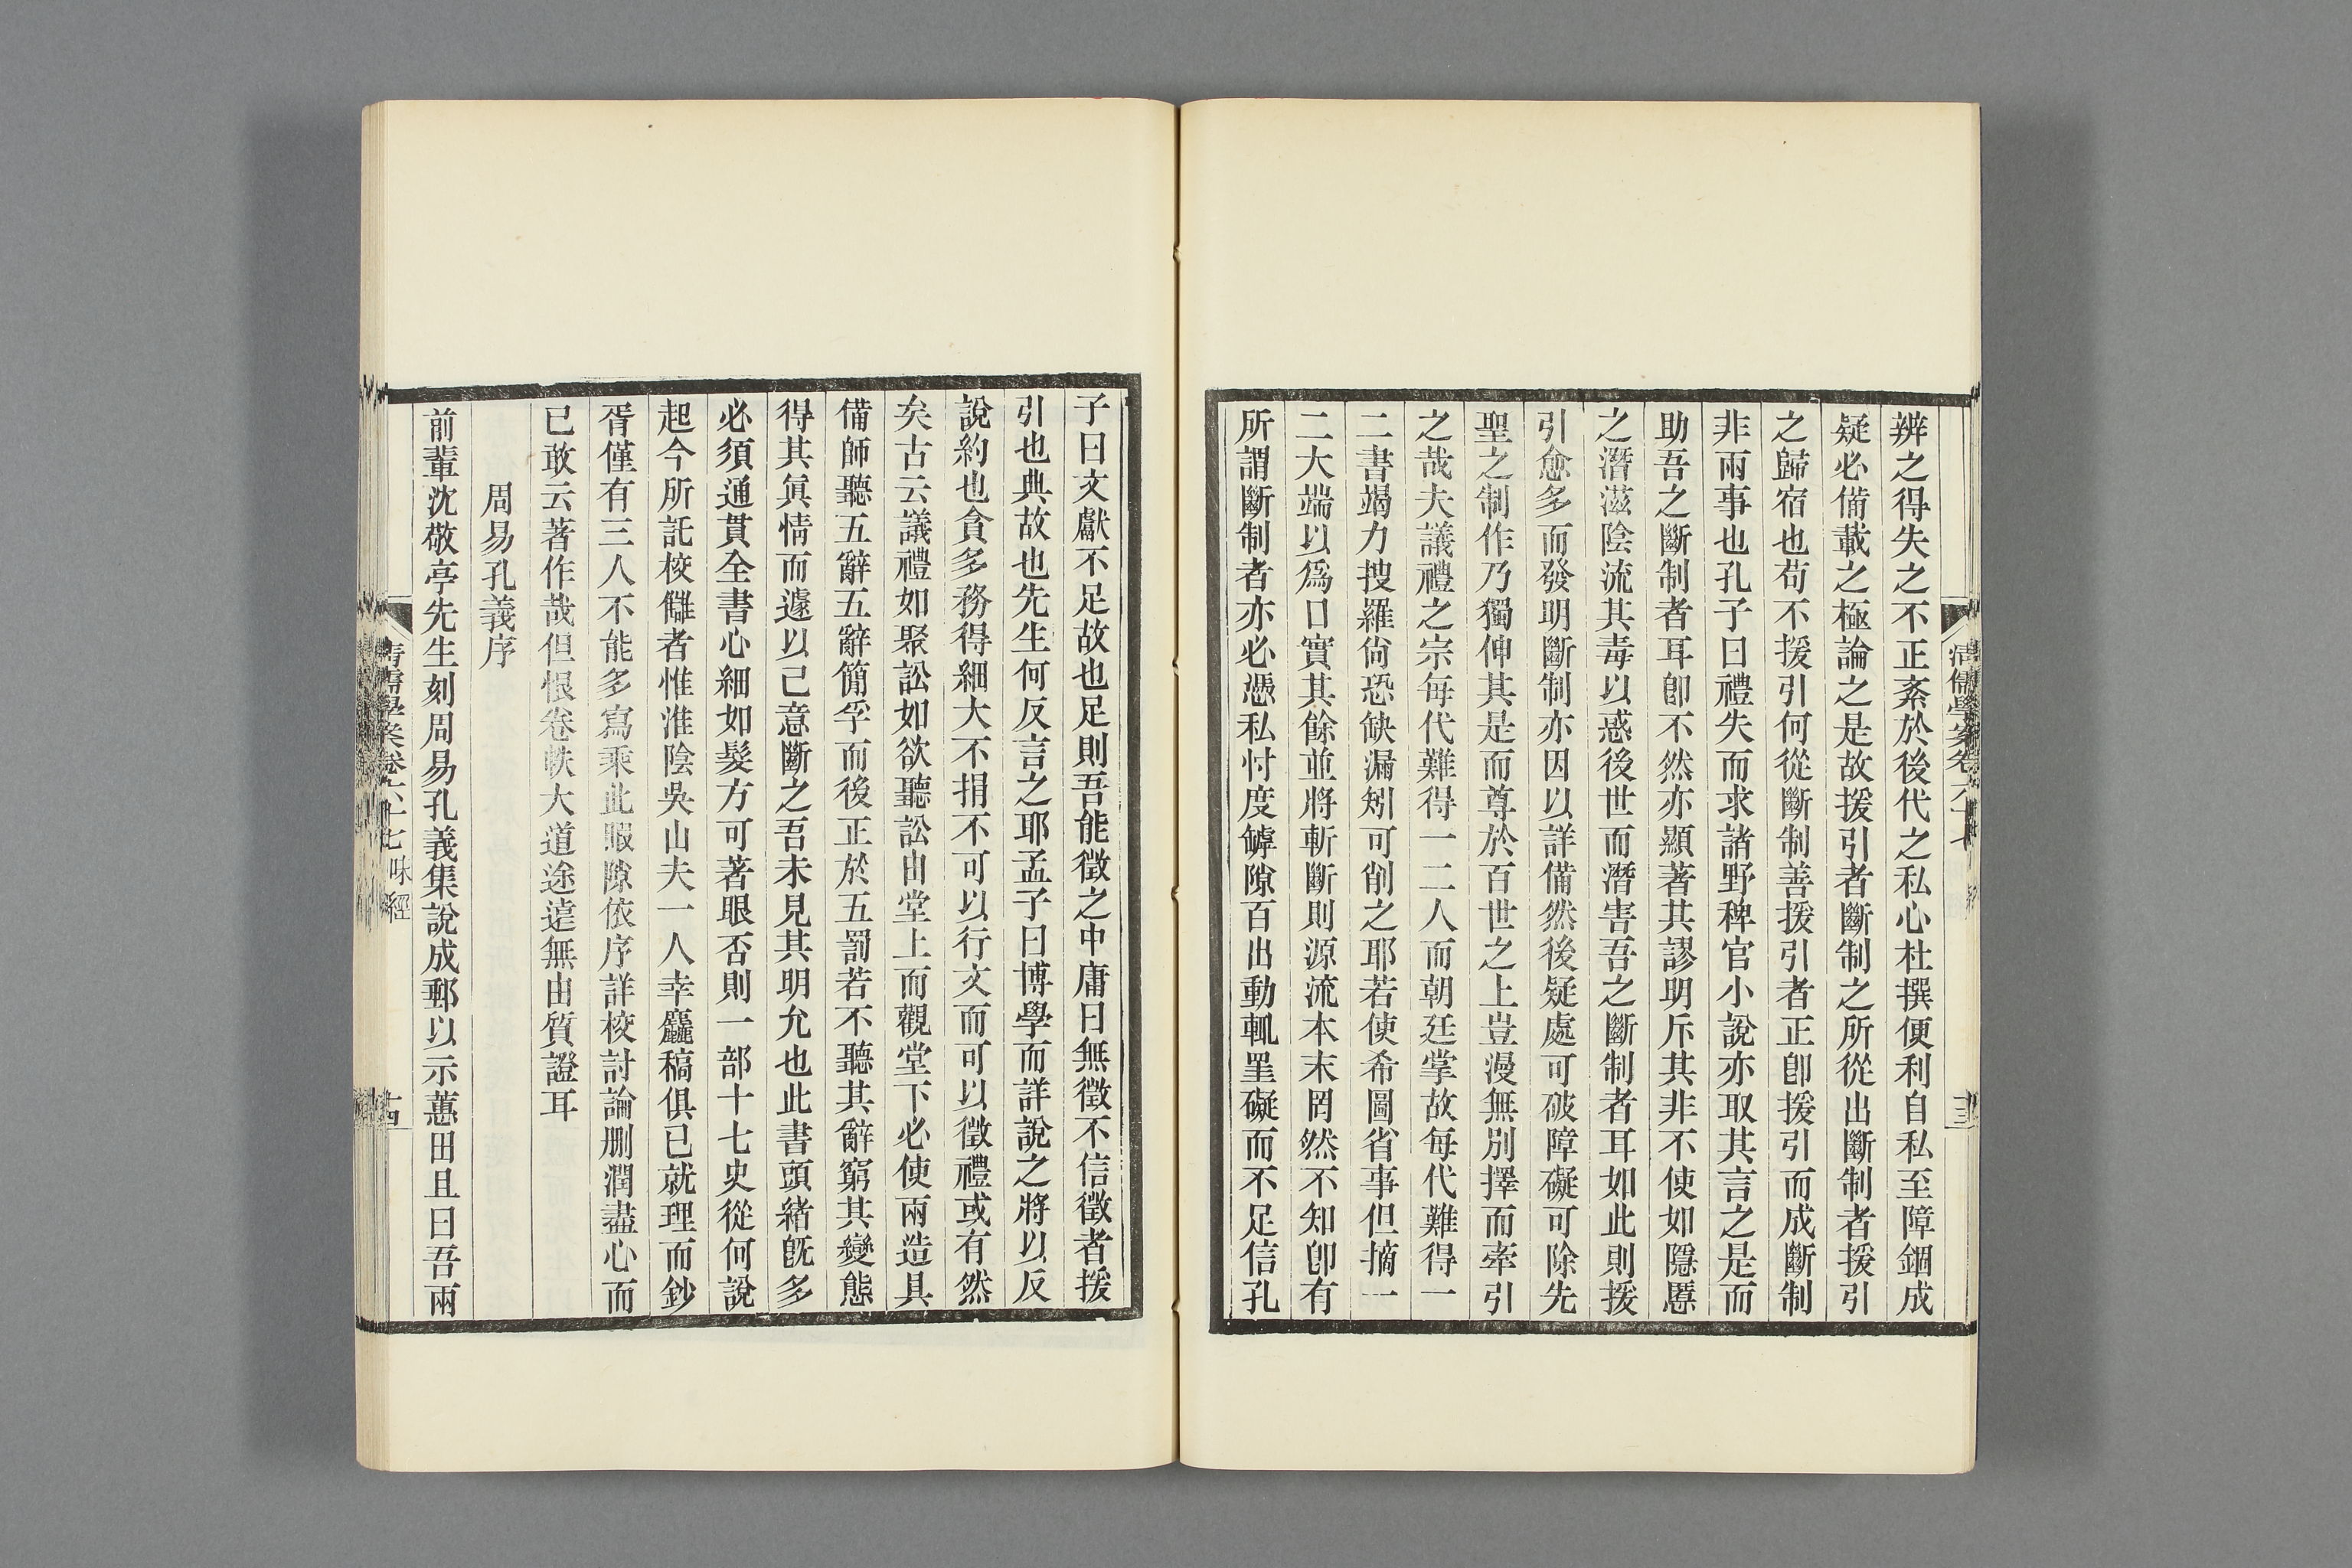 辨之得失之不正紊於後代之私心杜撰便利自私至障錮成
疑必備載之極論之是故援引者斷制之所從出斷制者援引
之歸宿也苟不援引何從斷制善援引者正卽援引而成斷制
非兩事也孔子曰禮失而求諸野稗官小說亦取其言之是而
助吾之斷制者耳卽不然亦顯著其謬明斥其非不使如隱慝
之潛滋陰流其毒以惑後世而潛害吾之斷制者耳如此則援
引愈多而發明斷制亦因以詳備然後疑處可破障礙可除先
聖之制作乃獨伸其是而尊於百世之上豈漫無別擇而牽引
之哉夫議禮之宗每代難得一二人而朝廷掌故每代難得一
二書竭力搜羅尙恐缺漏矧可削之耶若使希圖省事但摘一
二大端以爲口實其餘並將斬斷則源流本末罔然不知卽有
所謂斷制者亦必憑私忖度罅隙百出動輒罣礙而不足信孔
清儒學案卷六十七
十三
子曰文獻不足故也足則吾能徵之中庸曰無徵不信徵者援
引也典故也先生何反言之耶孟子曰博學而詳說之將以反
說約也貪多務得細大不捐不可以行文而可以徵禮或有然
矣古云議禮如聚訟如欲聽訟由堂上而觀堂下必使兩造具
備師聽五辭五辭簡孚而後正於五罰若不聽其辭窮其變態
得其眞情而遽以己意斷之吾未見其明允也此書頭緒旣多
必須通貫全書心細如髮方可著眼否則一部十七史從何說
起今所託校讎者惟淮陰吳山夫一人幸麤稿俱已就理而鈔
胥僅有三人不能多寫乘此暇隙依序詳校討論刪潤盡心而
已敢云著作哉但恨卷帙大道途遠無由質證耳
周易孔義序
前輩沈敬亭先生刻周易孔義集說成郵以示蕙田且曰吾兩
清儒學案卷六十七 味經
十四